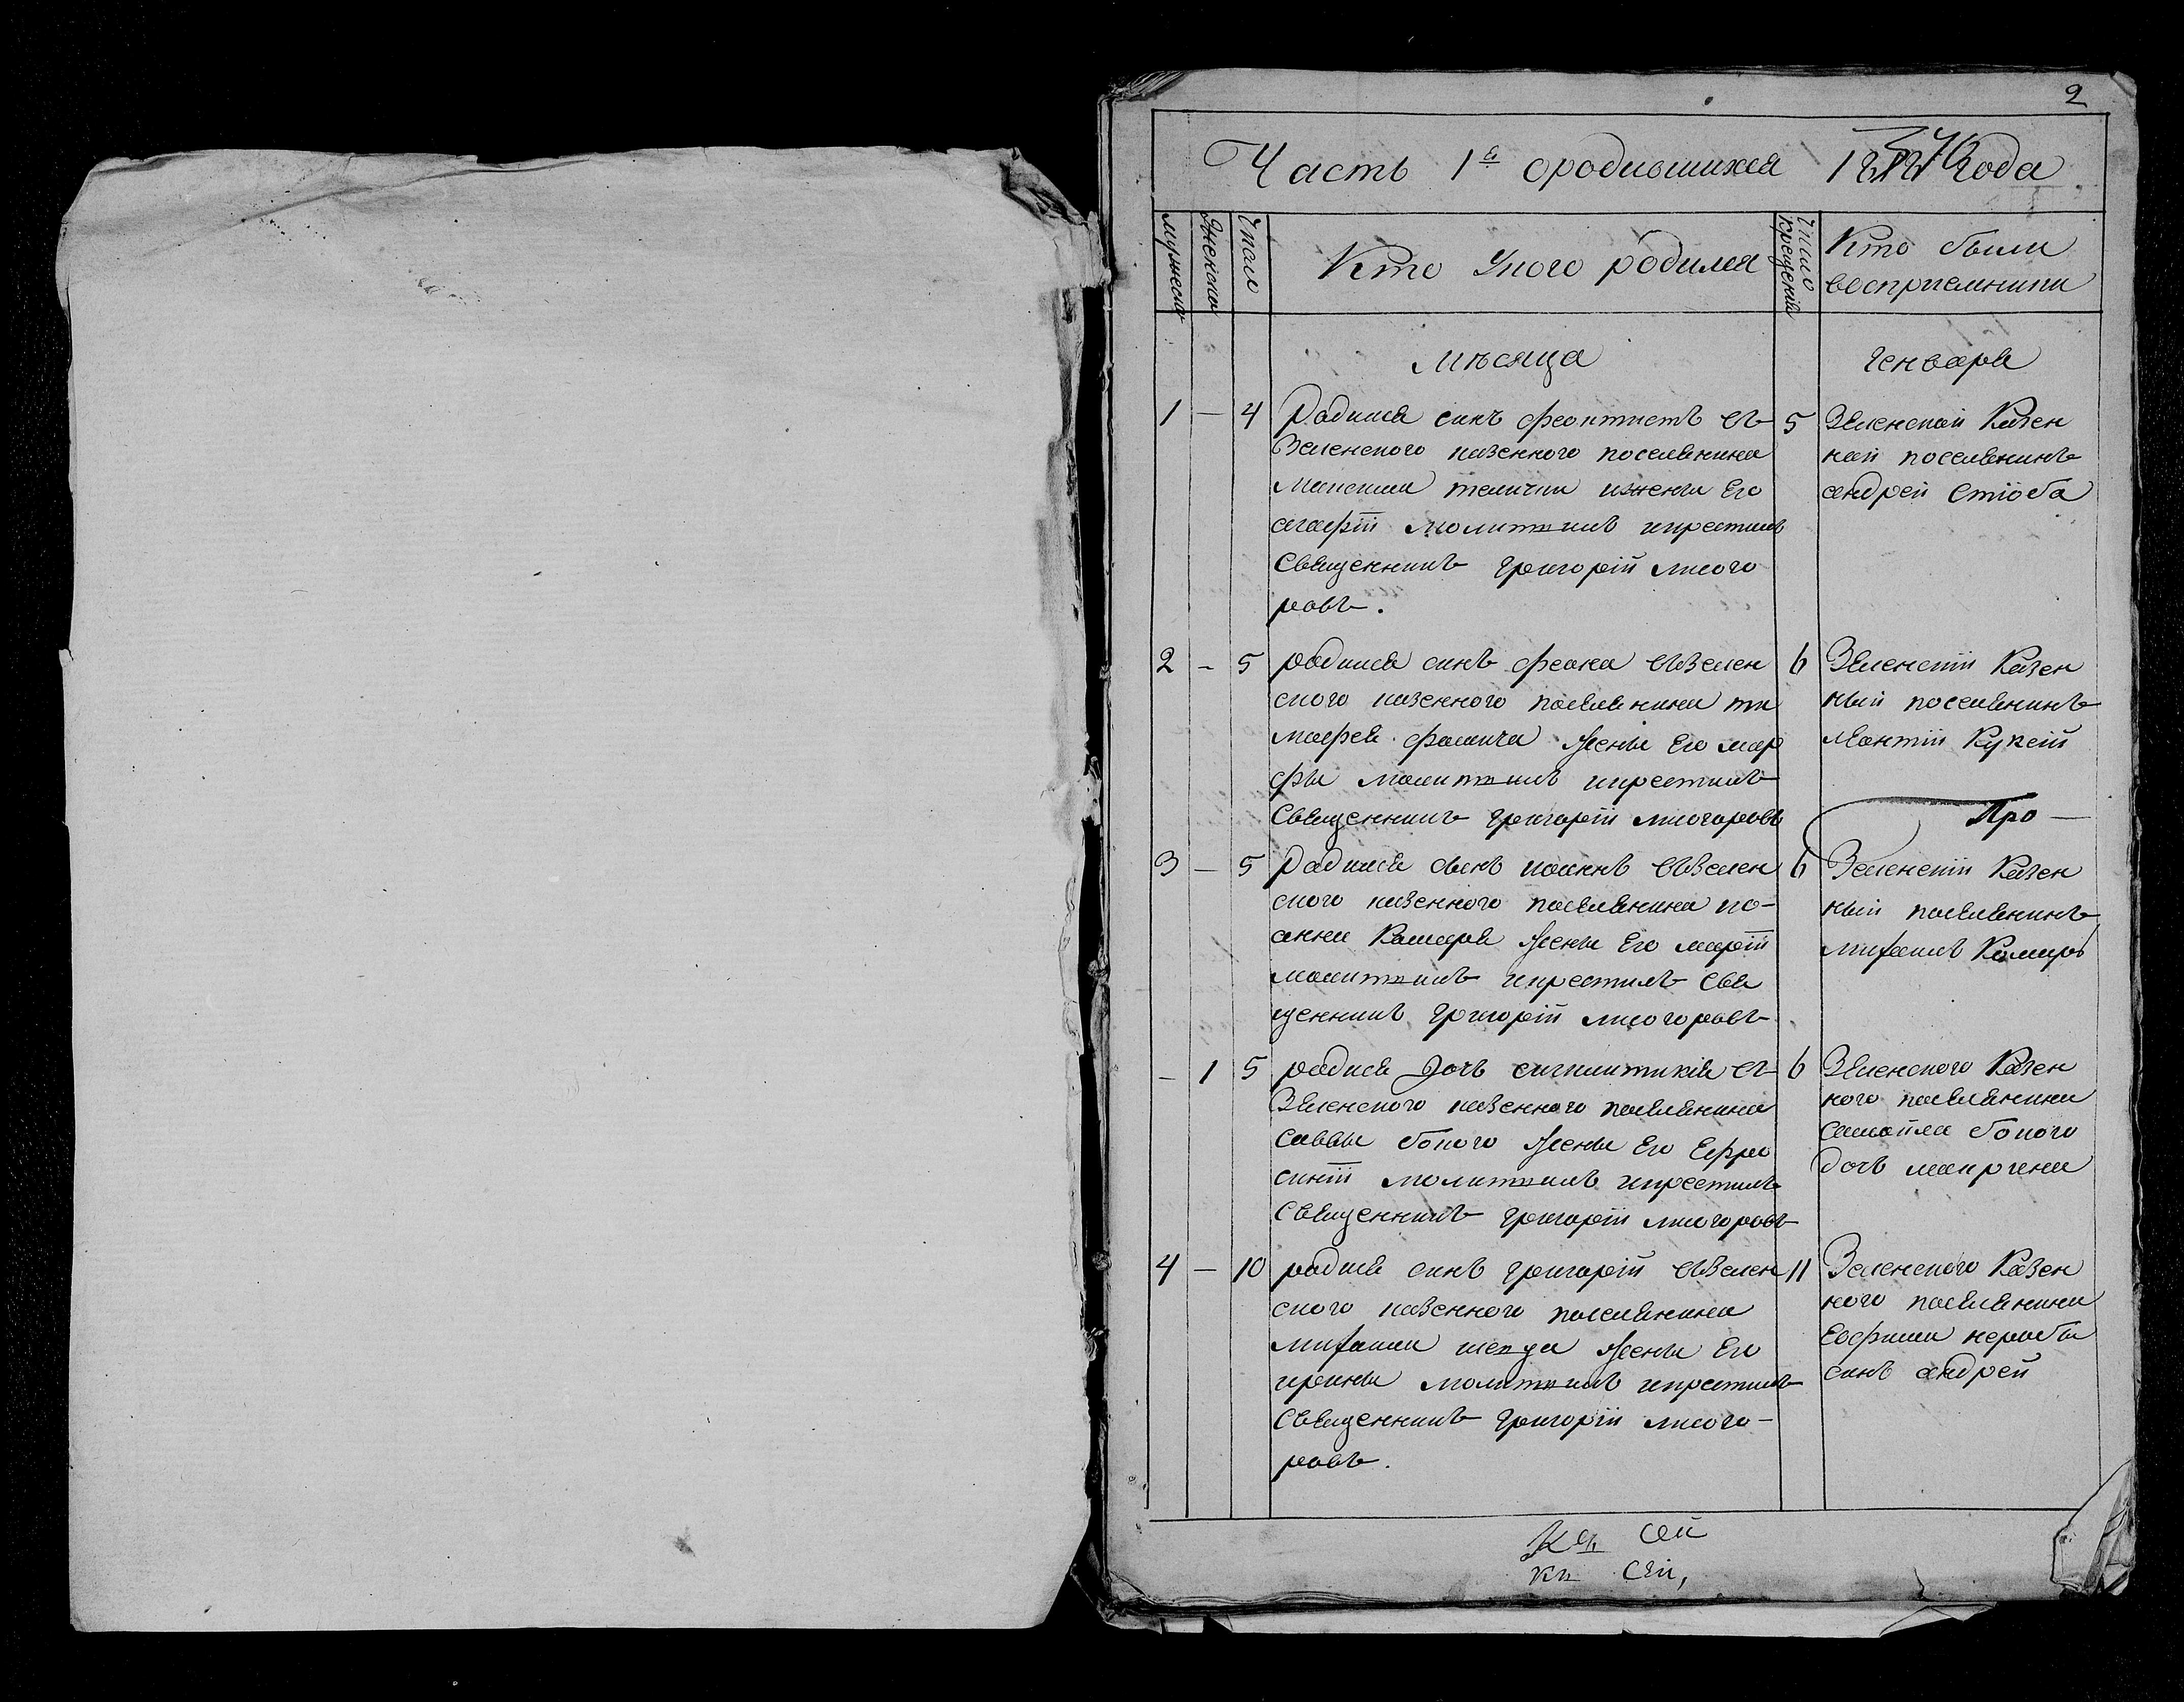 2
Часть 1я ородившихся 18 года
мужеска
женска
число
Кто Укого родился
число крещенія
Кто были
восприемники
мѣсяца
генваря
1 — 4
Родился синъ феоктистъ съ
Зеленского казенного поселянина
максима телички ижены Его
агафіи молитвилъ икрестилъ
Священникъ григорій лисого
ровъ.
5
Зеленскій Казен
ный поселянинъ
андрей стіоба
2 - 5
родился синъ феона съЗелен
ского казенного поселянина ти
мофея жены Его мар
фы молитвилъ икрестилъ
Священникъ григорій лисогоровъ
6
Зеленскій Казен
ный поселянинъ
леонтій Курсій
Про —
3 — 5
Родился сынъ иоаннъ съЗелен
ского казенного поселянина ио-
анна Комаря жены Его маріи
молитвилъ икрестилъ Свя
щенникъ григорій лисогоровъ
6
Зеленскій Казен
ный поселянинъ
михаилъ Комаръ
— 1 5
родися дочъ сигклитикія съ
Зеленского казенного поселянина
саввы бокого жены Его Ефро
синіи молитвилъ икрестилъ
Священникъ григорій лисогоровъ
6
Зеленского Казен
ного поселянина
самойла бокого
дочъ
4 — 10
родися синъ григорій съЗелен
ского казенного поселянина
михаила жены Его
ирины молитвилъ икрестилъ
Священникъ григорій лисого-
ровъ.
11
Зеленского Казен
ного поселянина
Евфима
синъ андрей
сей
кн сей,